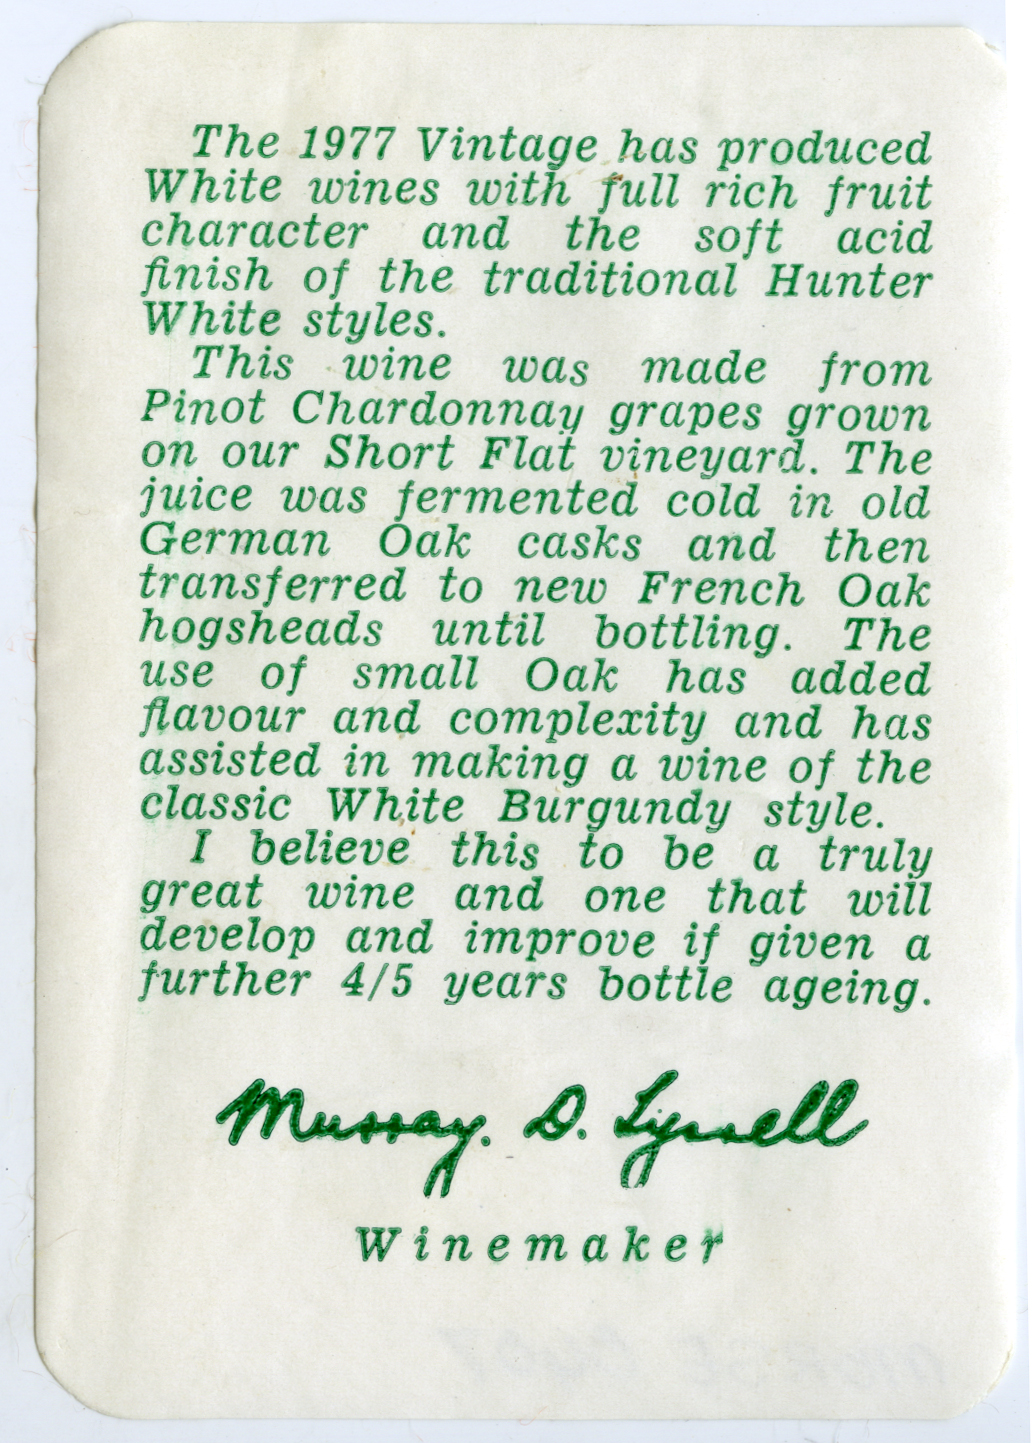 The 1977 Vintage has produced
White wines with full rich fruit
character and the soft acid
finish of the traditional Hunter
White styles.
This wine was made from
Pinot Chardonnay grapes grown
on our Short Flat vineyard. The
juice was fermented cold in old
German Oak casks and then
transferred to new French Oak
hogsheads until bottling. The
use of small Oak has added
flavour and complexity and has
assisted in making a wine of the
classic White Burgundy style.
I believe this to be a truly
great wine and one that will
develop and improve if given a
further 4/5 years bottle ageing.
Murray. D. Tyrrell
Winemaker